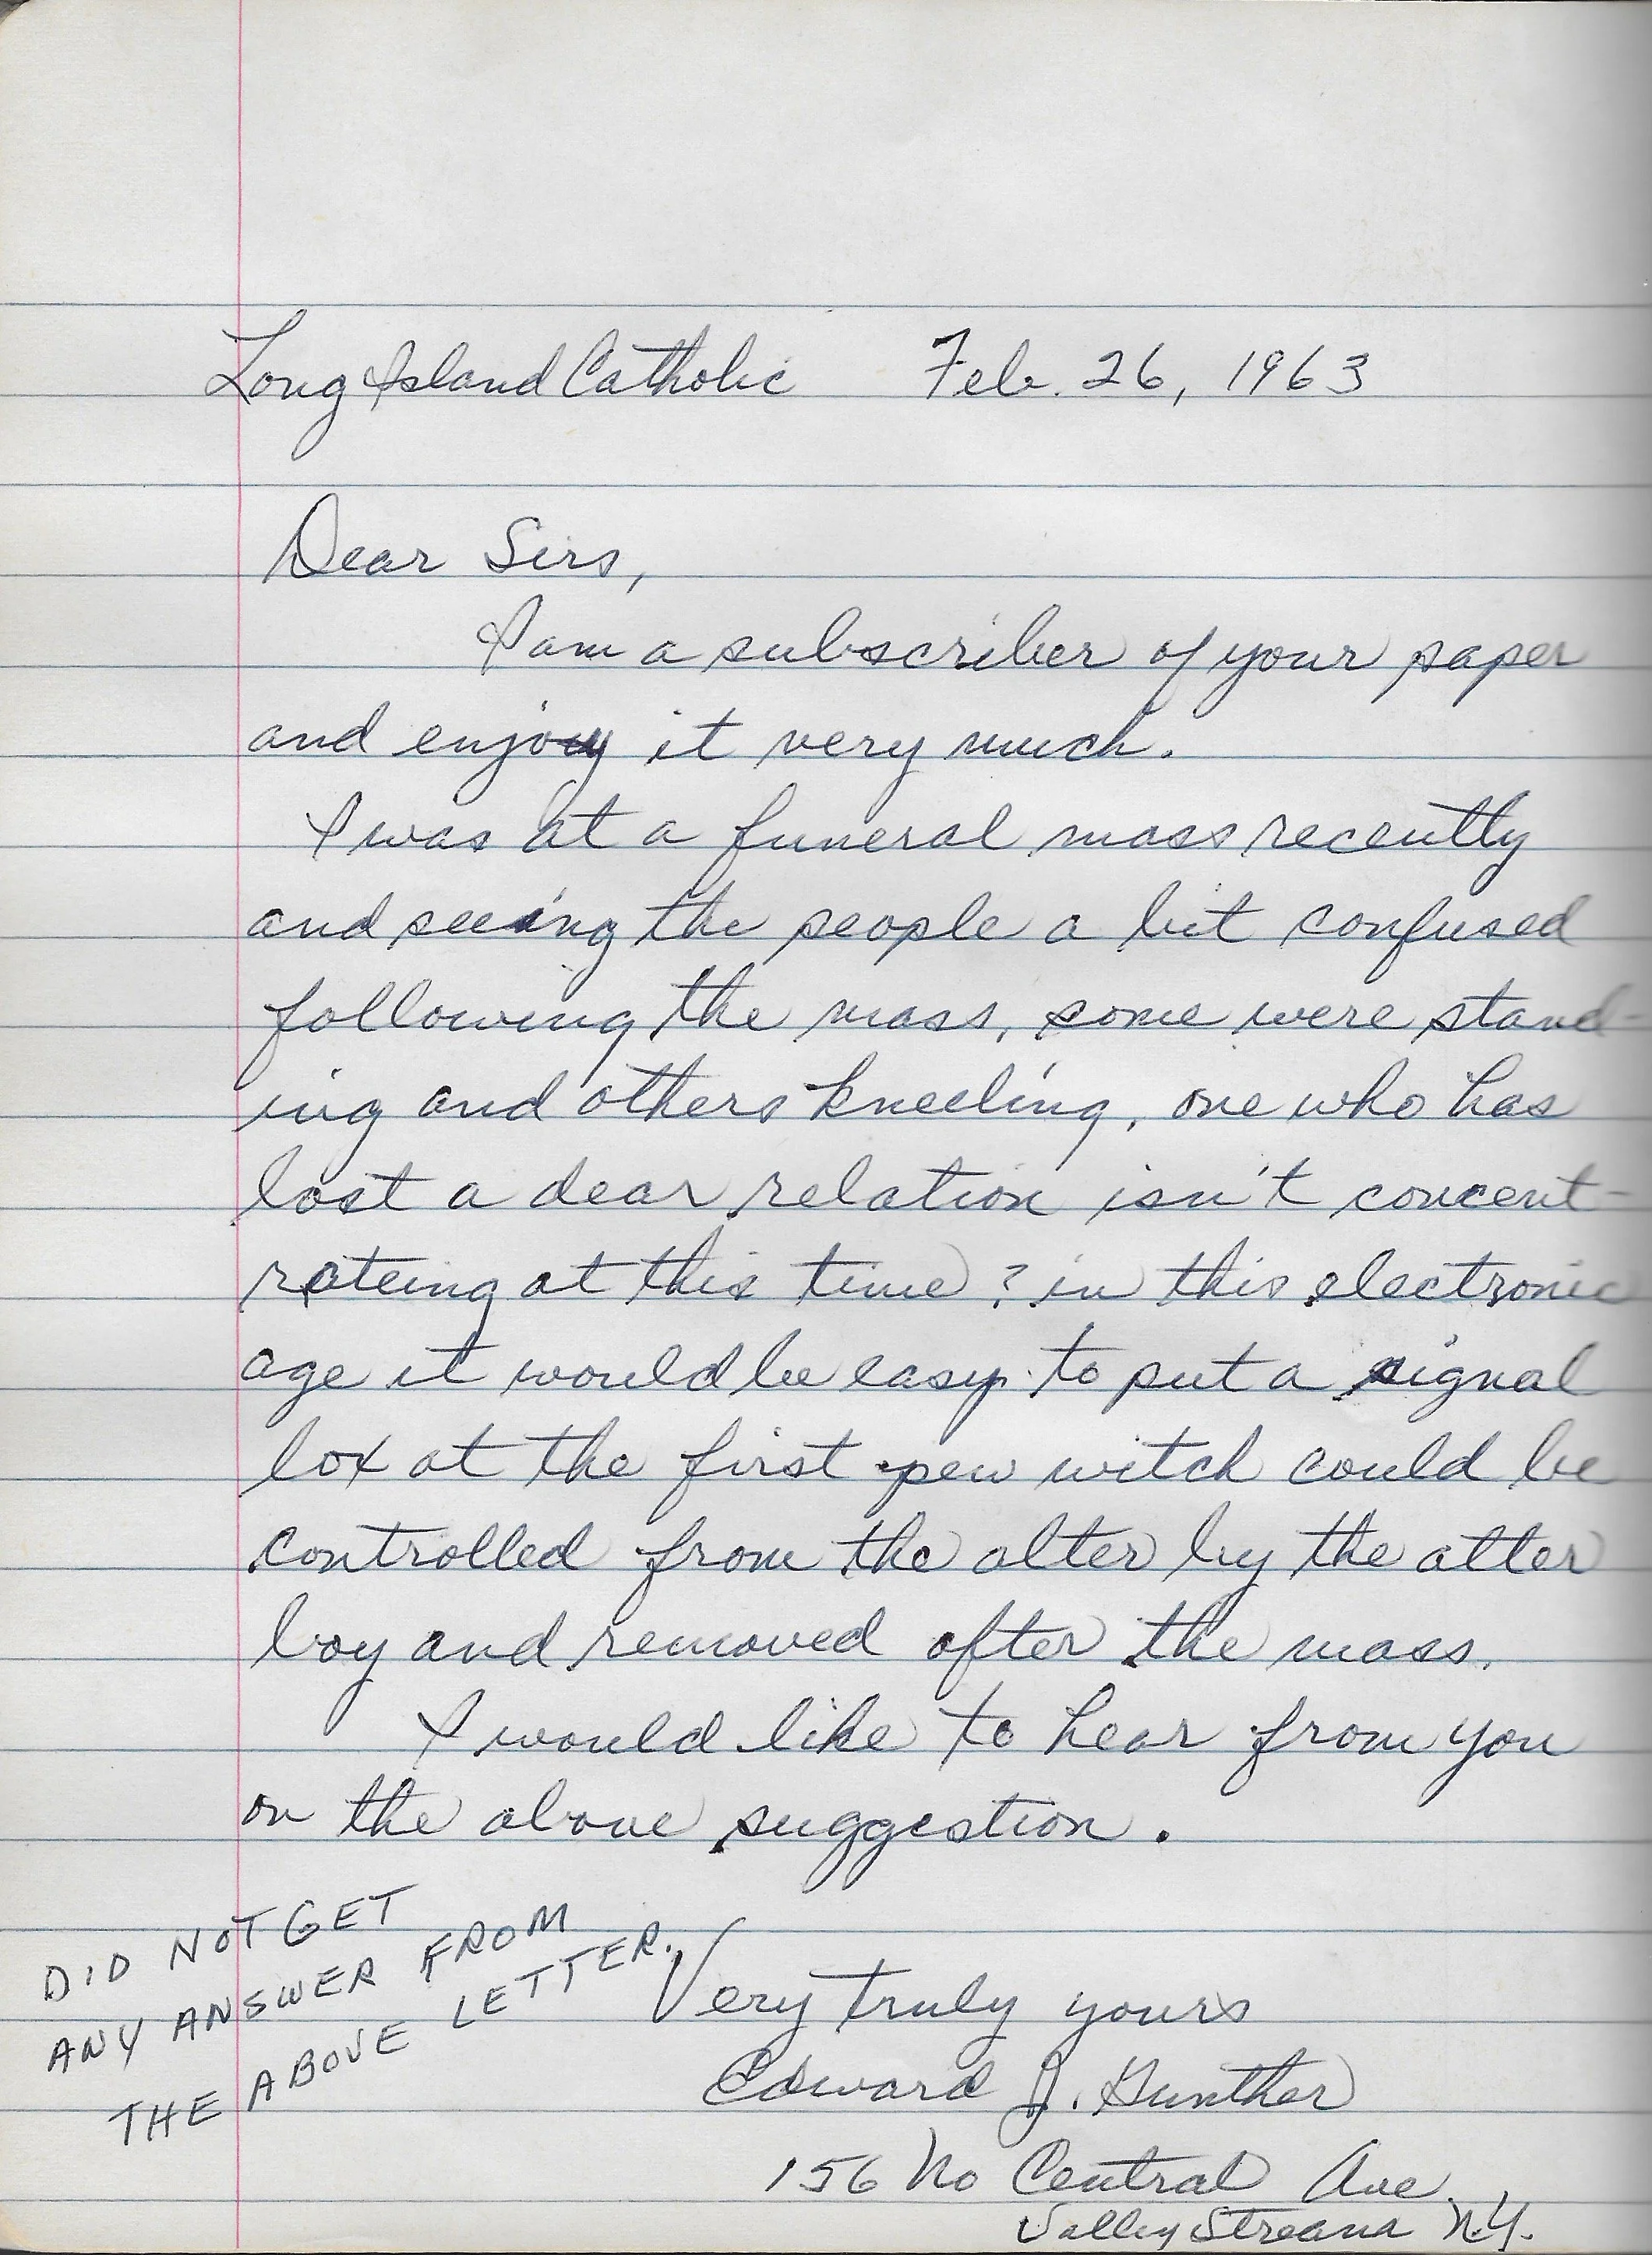 Long Island Catholic Feb. 26, 1963
Dear Sirs,
I am a subscriber of your paper
and enjoy it very much.
I was at a funeral mass recently
and seeing the people a bit confused
following the mass, some were stand-
ing and others kneeling, one who has
lost a dear relation isn't concent-
rateing at this time? in this electronic
age it would be easy to put a signal
box at the first pew witch could be
controlled from the alter by the alter
boy and removed after the mass.
I would like to hear from you
on the above suggestion.
Very truly yours
Edward J. Gunther
156 No Central Ave.
Valley Stream N.Y.
DID NOT GET
ANY ANSWER FROM
THE ABOVE LETTER.